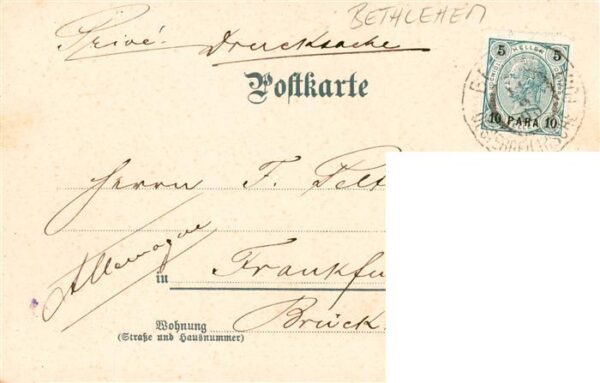 BETHLEHEM
Privé. Drucksache
Postkarte
5 HELLER 5
10 PARA 10
Herrn F. Pelt
Allemagne
in Frankfu
Wohnung
(Straße und Hausnummer)
Brück